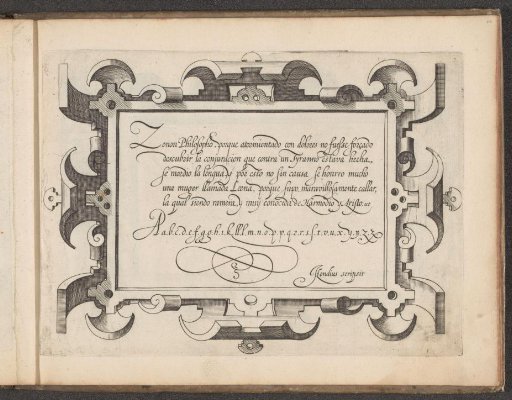 Zenon Philosopho, porque atormentado con dolores no fuesse forçado
descubrir la conjuracion que contra un Tyranno estava hecha,
se mordio la lengua, y por esto no sin causa se honrro mucho
una muger llamada Leena, porque supo maravillosamente callar,
la qual siendo ramera, y muy conocida de Harmodio y Aristo.
Aabcdefgghiklllmnoppqrrsstvuxyzz
Hondius scripsit